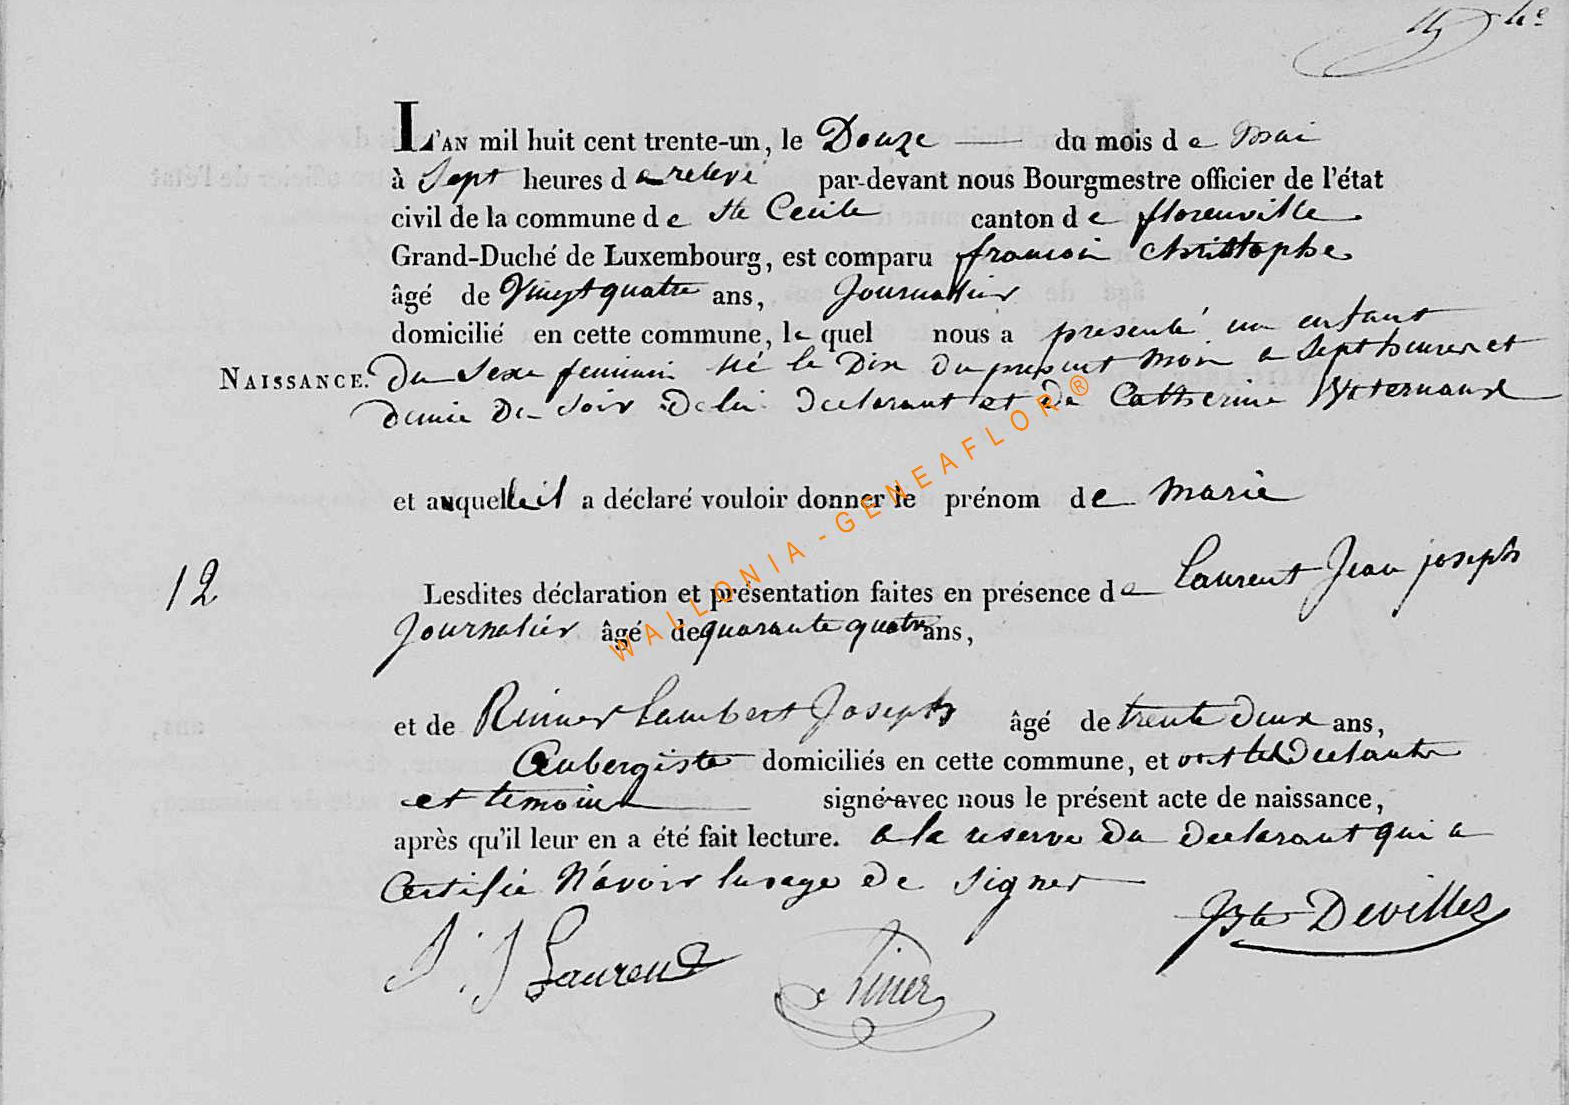 4e
L'AN mil huit cent trente-un, le Douze du mois de mai
à Sept heures d par-devant nous Bourgmestre officier de l'état
civil de la commune de Ste Cecile canton de florenville
Grand-Duché de Luxembourg, est comparu francoi christophe
âgé de Vingt quatre ans, Journalier
domicilié en cette commune, le quel nous a presenté un enfant
NAISSANCE. Du Sexe feminin né le Dix du present moi a Sept heures et
demie Du Soir De lui declarant et de Catherine
et auquelle il a déclaré vouloir donner le prénom de Marie
12
Lesdites déclaration et présentation faites en présence de Laurent Jean joseph
Journalier âgé de quarante quatre ans,
et de Rinner Lambert Joseph âgé de trente deux ans,
Aubergiste domiciliés en cette commune, et ont les
et temoin signé avec nous le présent acte de naissance,
après qu'il leur en a été fait lecture. a la reserve du declarant qui a
Certifié N'avoir lusage de Signer
J. J Laurent
Riner
Jbte Devillez
WALLONIA - GENEAFLOR ®